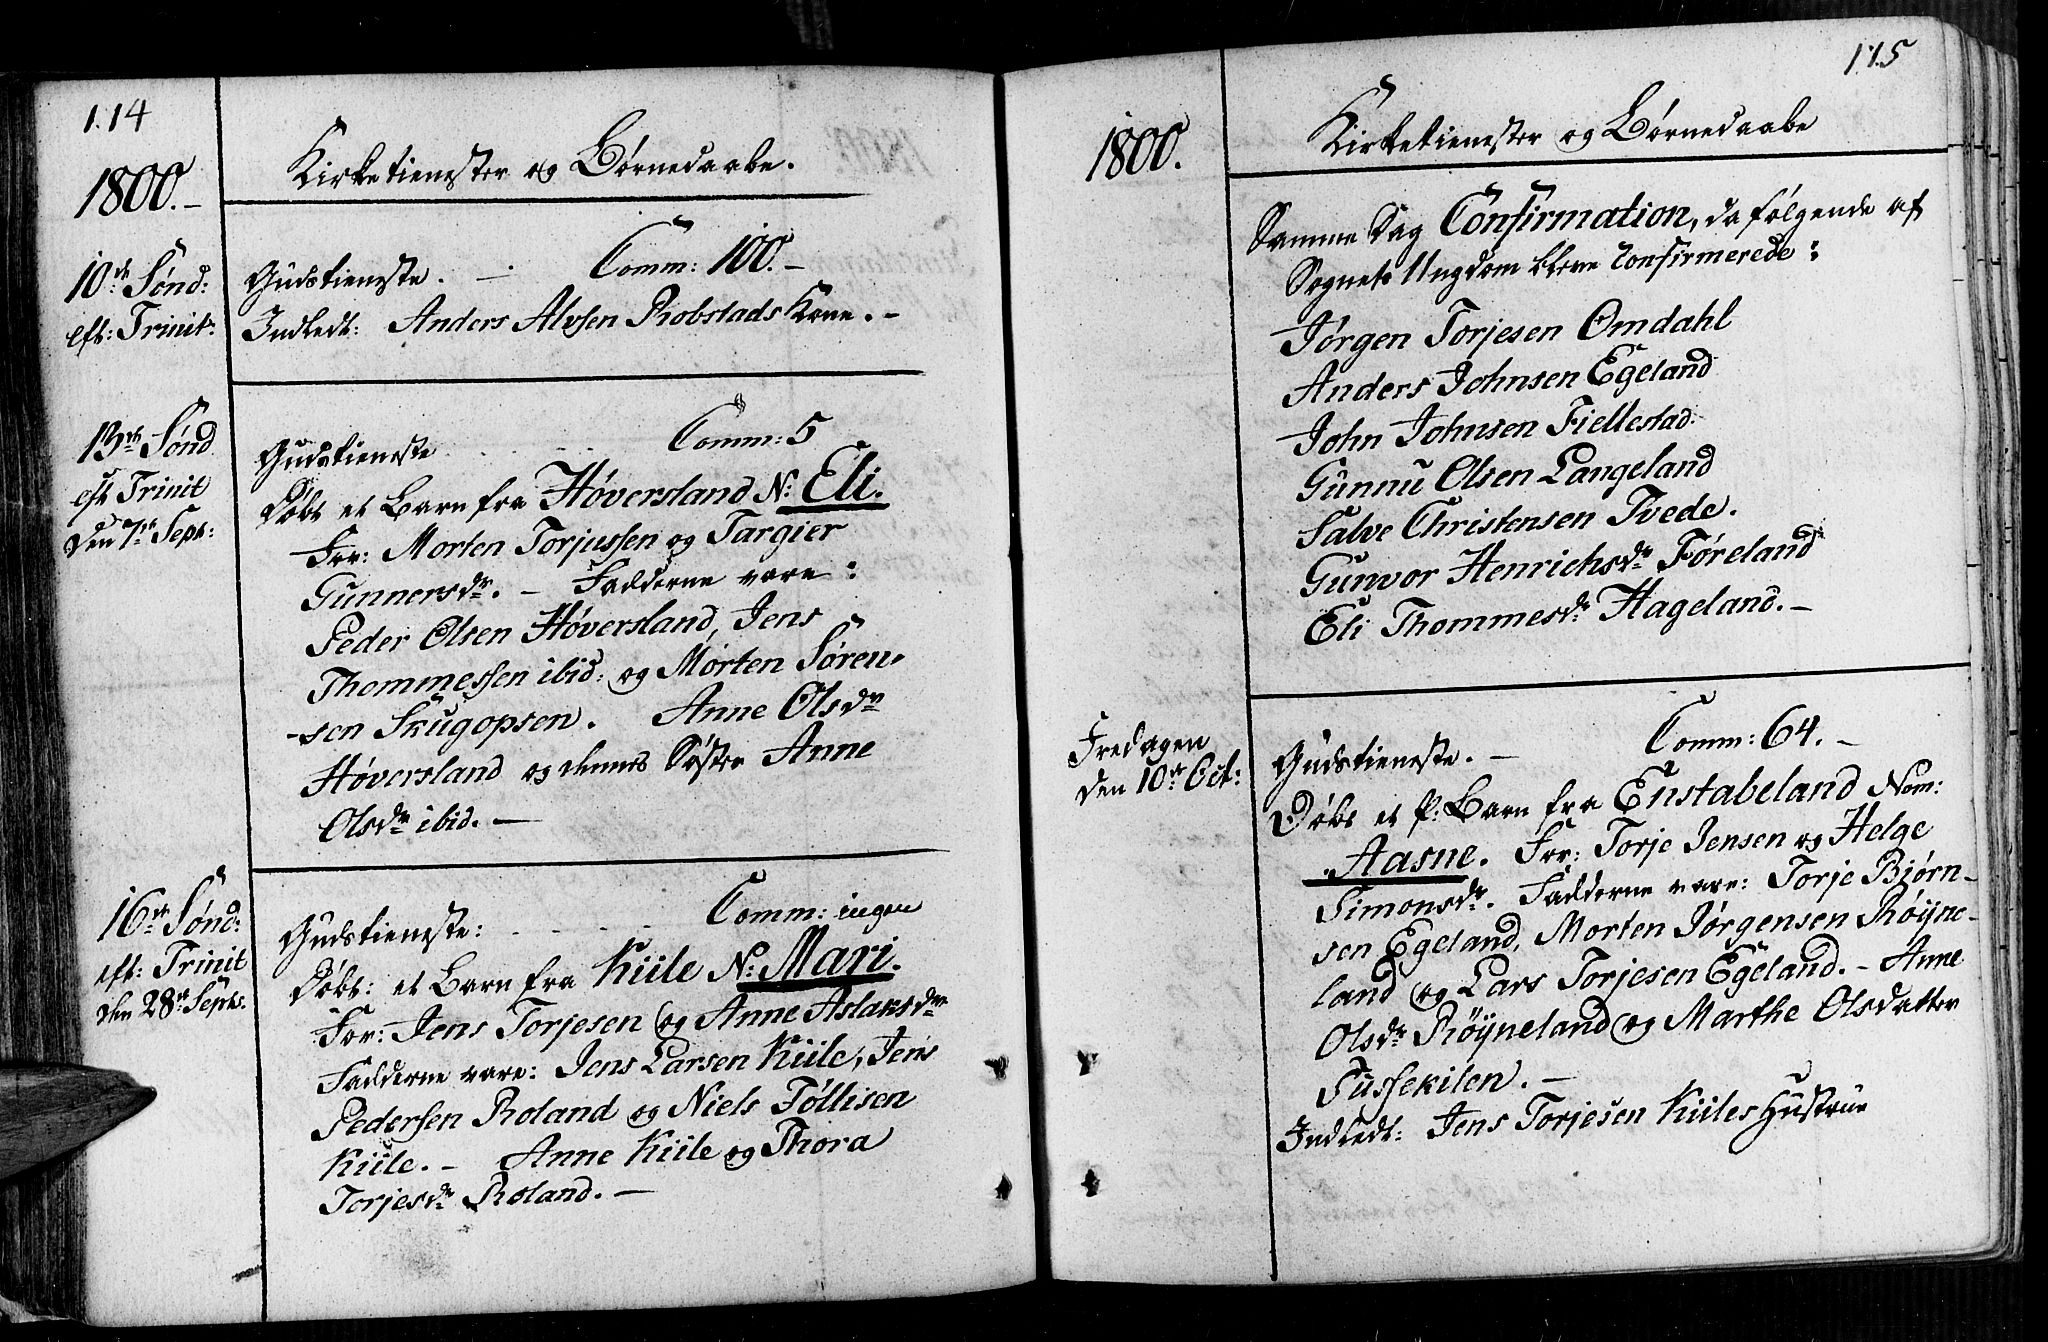 114
1800.-
Kirketienester og Børnedaabe.
10de Sønd:
eft: Trinit:
Gudstieneste. - Comm: 100.-
Indledt: Anders Alvsen Robstads Kone.-
13de Sønd
eft Trinit
den 7de Sept:
Gudstieneste . . . . . Comm: 5
Døbt et Barn fra Høversland N: Eli.
For: Morten Torjussen og Targier
Gunnersdr. - Fadderne vare:
Peder Olsen Høversland, Jens
Thommessen ibid: og Mørten Søren-
-sen Skugopsen. Anne Olsdr
Høversland og dennes Søster Anne
Olsdr ibid. -
16de Sønd:
eft: Trinit
den 28de Septr.
Gudstieneste: . . . . . Comm: ingen
Døbt: et Barn fra Kiile N: Mari.
For: Jens Torjesen og Anne Aslaksdr
Fadderne vare: Jens Larsen Kiile, Jens
Pedersen Roland og Niels Tøllisen
Kiile. - Anne Kiile og Thora
Torjesdr Roland. -
115
1800.
Kirketienester og Børnedaabe
Samme Dag Confirmation, da følgende af
Sognets Ungdom bleve Confirmerede:
Jørgen Torjesen Omdahl
Anders Johnsen Egeland
John Johnsen Fiellestad
Gunnu Olsen Langeland
Salve Christensen Tvede.
Gunvor Henrichsdr Føreland
Eli Thommesdr Hageland. -
Fredagen
den 10de Oct:
Gudstieneste. - Comm: 64. -
Døbt et p: Barn fra Enstabeland Nom:
Aasne. For: Torje Jensen og Helge
Simonsdr. Fadderne vare: Torje Bjørn-
sen Egeland, Morten Jørgensen Røyne-
land og Lars Torjesen Egeland. - Anne
Olsdr Røyneland og Marthe Olsdatter
Fussekilen. -
Indledt: Jens Torjesen Kiiles Hustrue